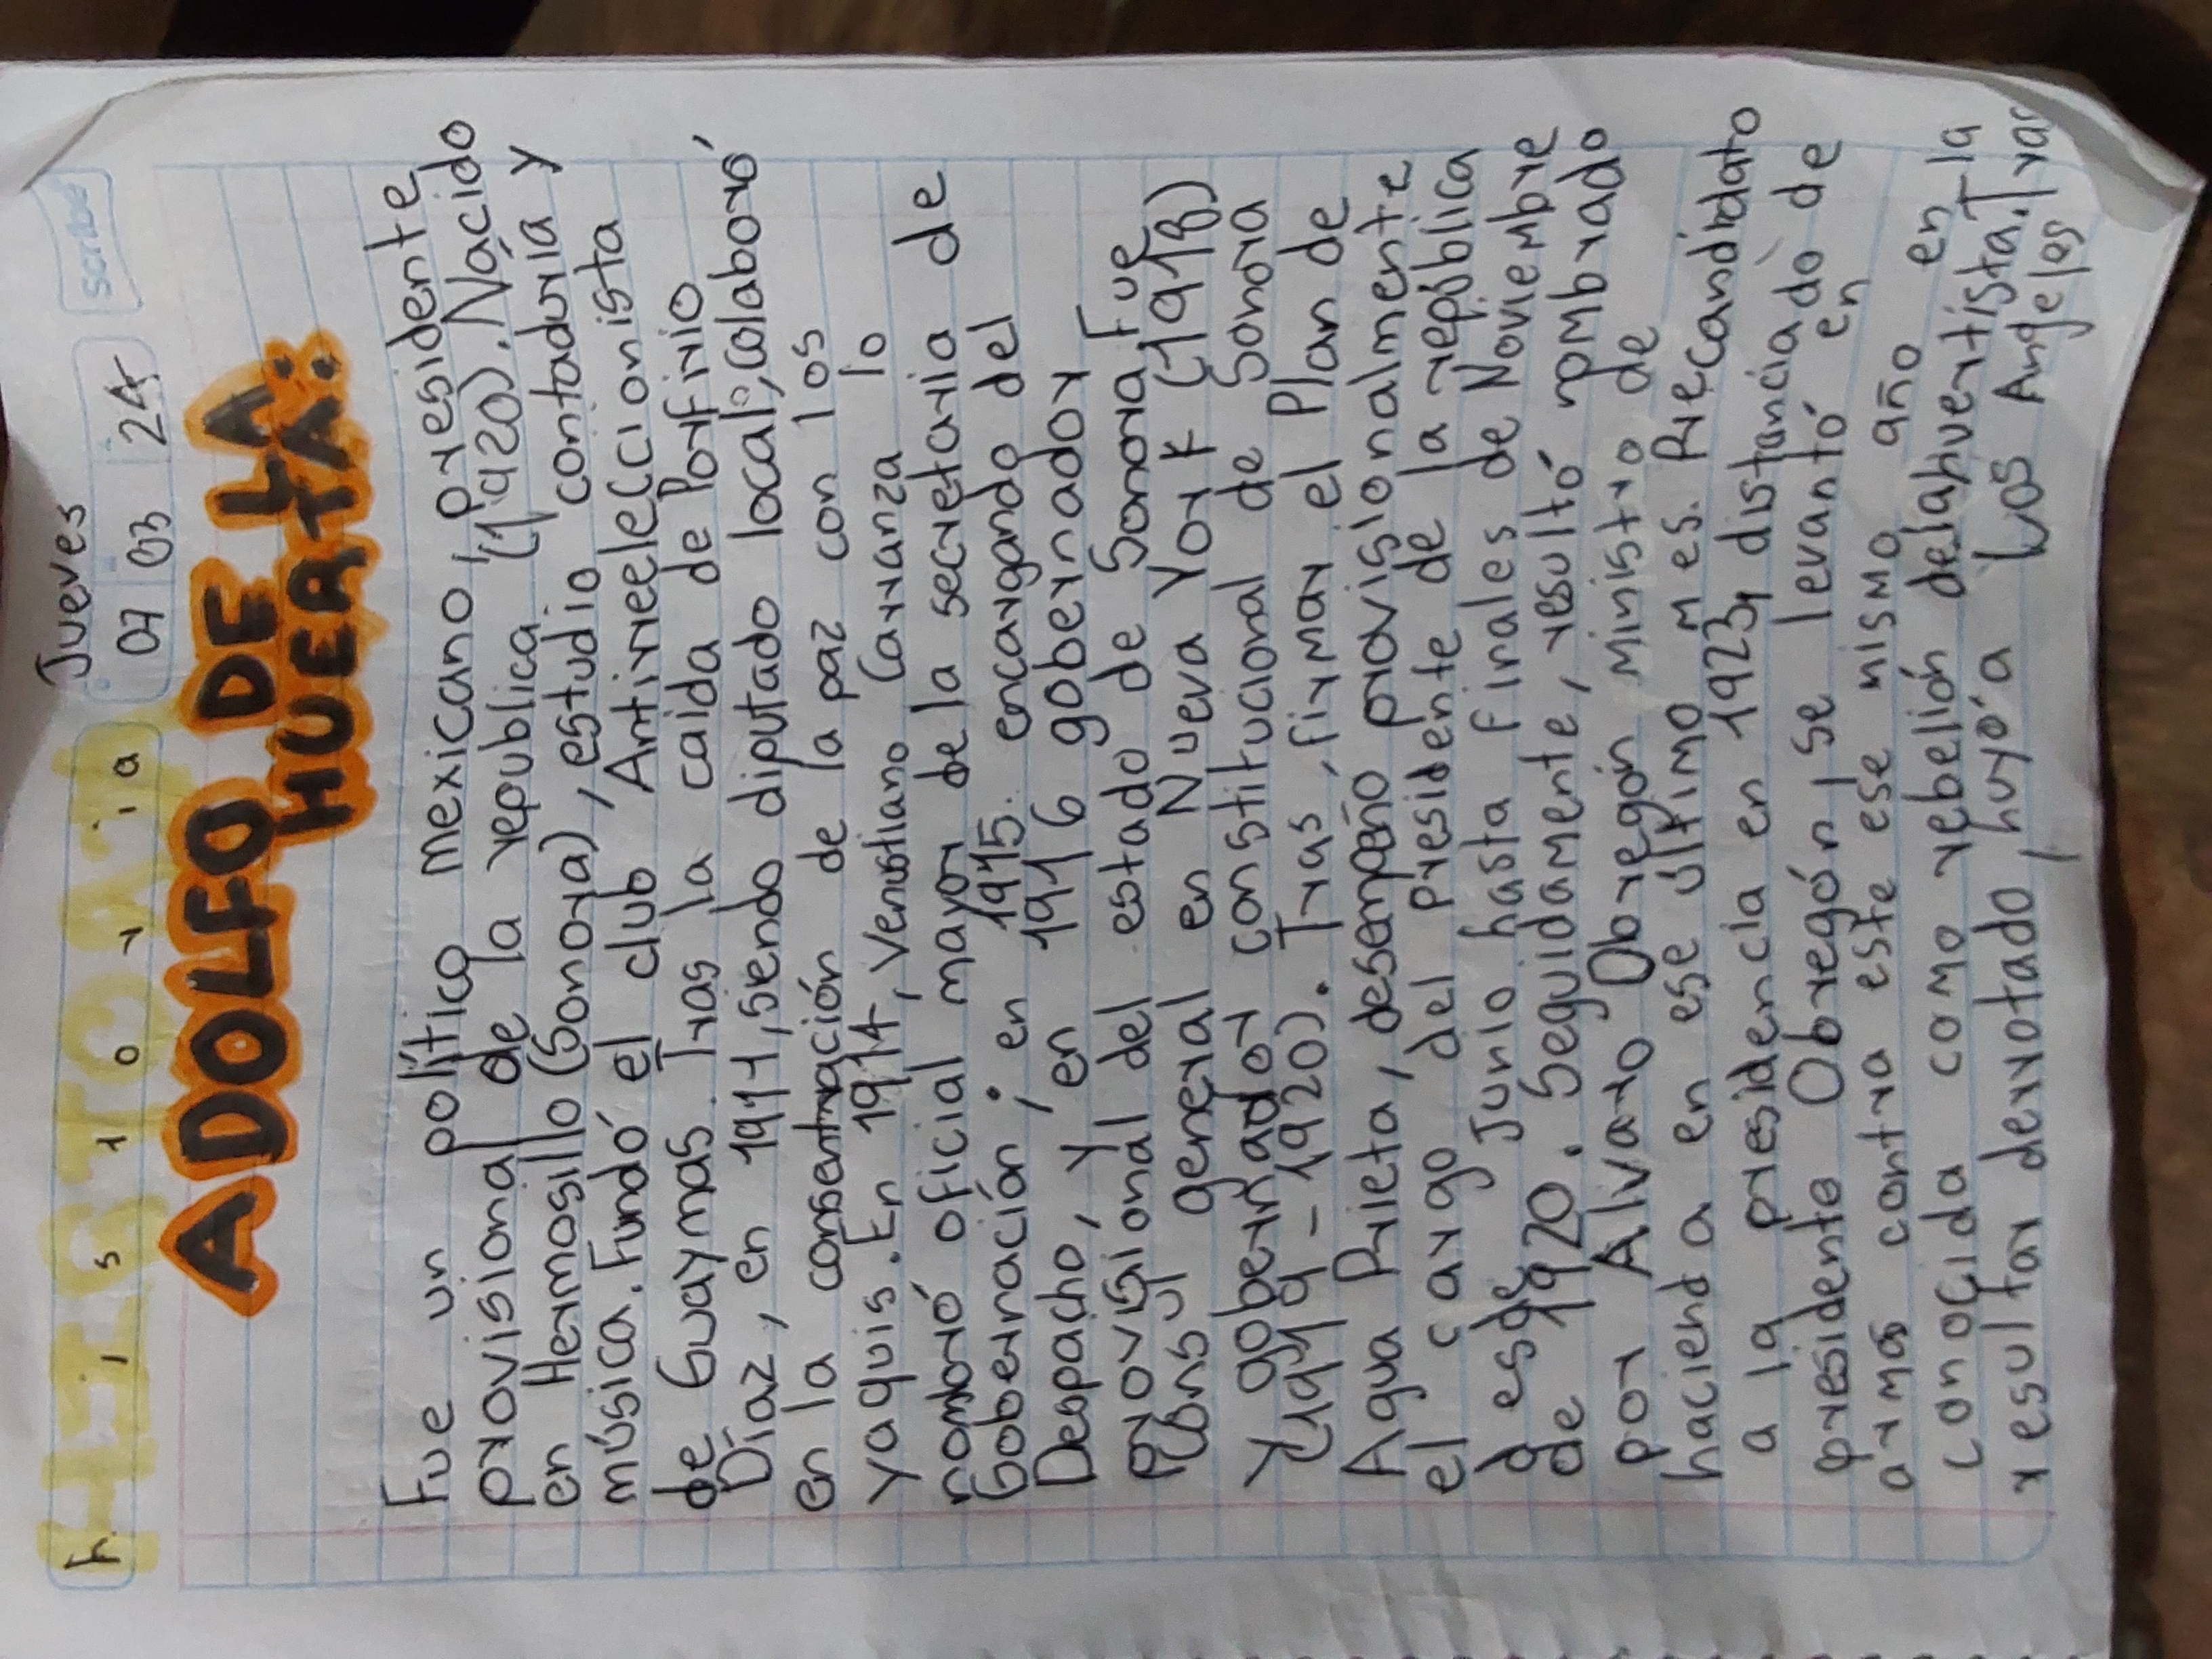 Jueves
scribe
Historia
07 03 24
ADOLFO DE LA
HUERTA:
Fue un político mexicano, presidente
provisional de la republica (1920). Nacido
en Hermosillo (Sonora), estudio contaduría y
música. Fundó el club Antirreeleccionista
de Guaymas. Tras la caida de Porfirio
Díaz, en 1911, siendo diputado local, colaboró
en la consentración de la paz con los
yaquis. En 1914, Venustiano Carranza lo
nombró oficial mayor de la secretaria de
Gobernación; en 1915. encargando del
Despacho, y en 1916 gobernador
provisional del estado de Sonora. Fue
Consul general en Nueva York (1918)
y gobernador constitucional de Sonora
(1919-1920). Tras firmar el Plan de
Agua Prieta, desempeño provisionalmente
el cargo del presidente de la república
desde Junio hasta finales de Noviembre
de 1920. Seguidamente, resultó nombrado
por Alvaro Obregón ministro de
hacienda en ese último mes. Precandidato
a la presidencia en 1923, distanciado de
presidente Obregón, se levantó en
arma contra este ese mismo año en la
conocida como rebelión delahuertista. Tras
resultar derrotado, huyó a Los Angeles